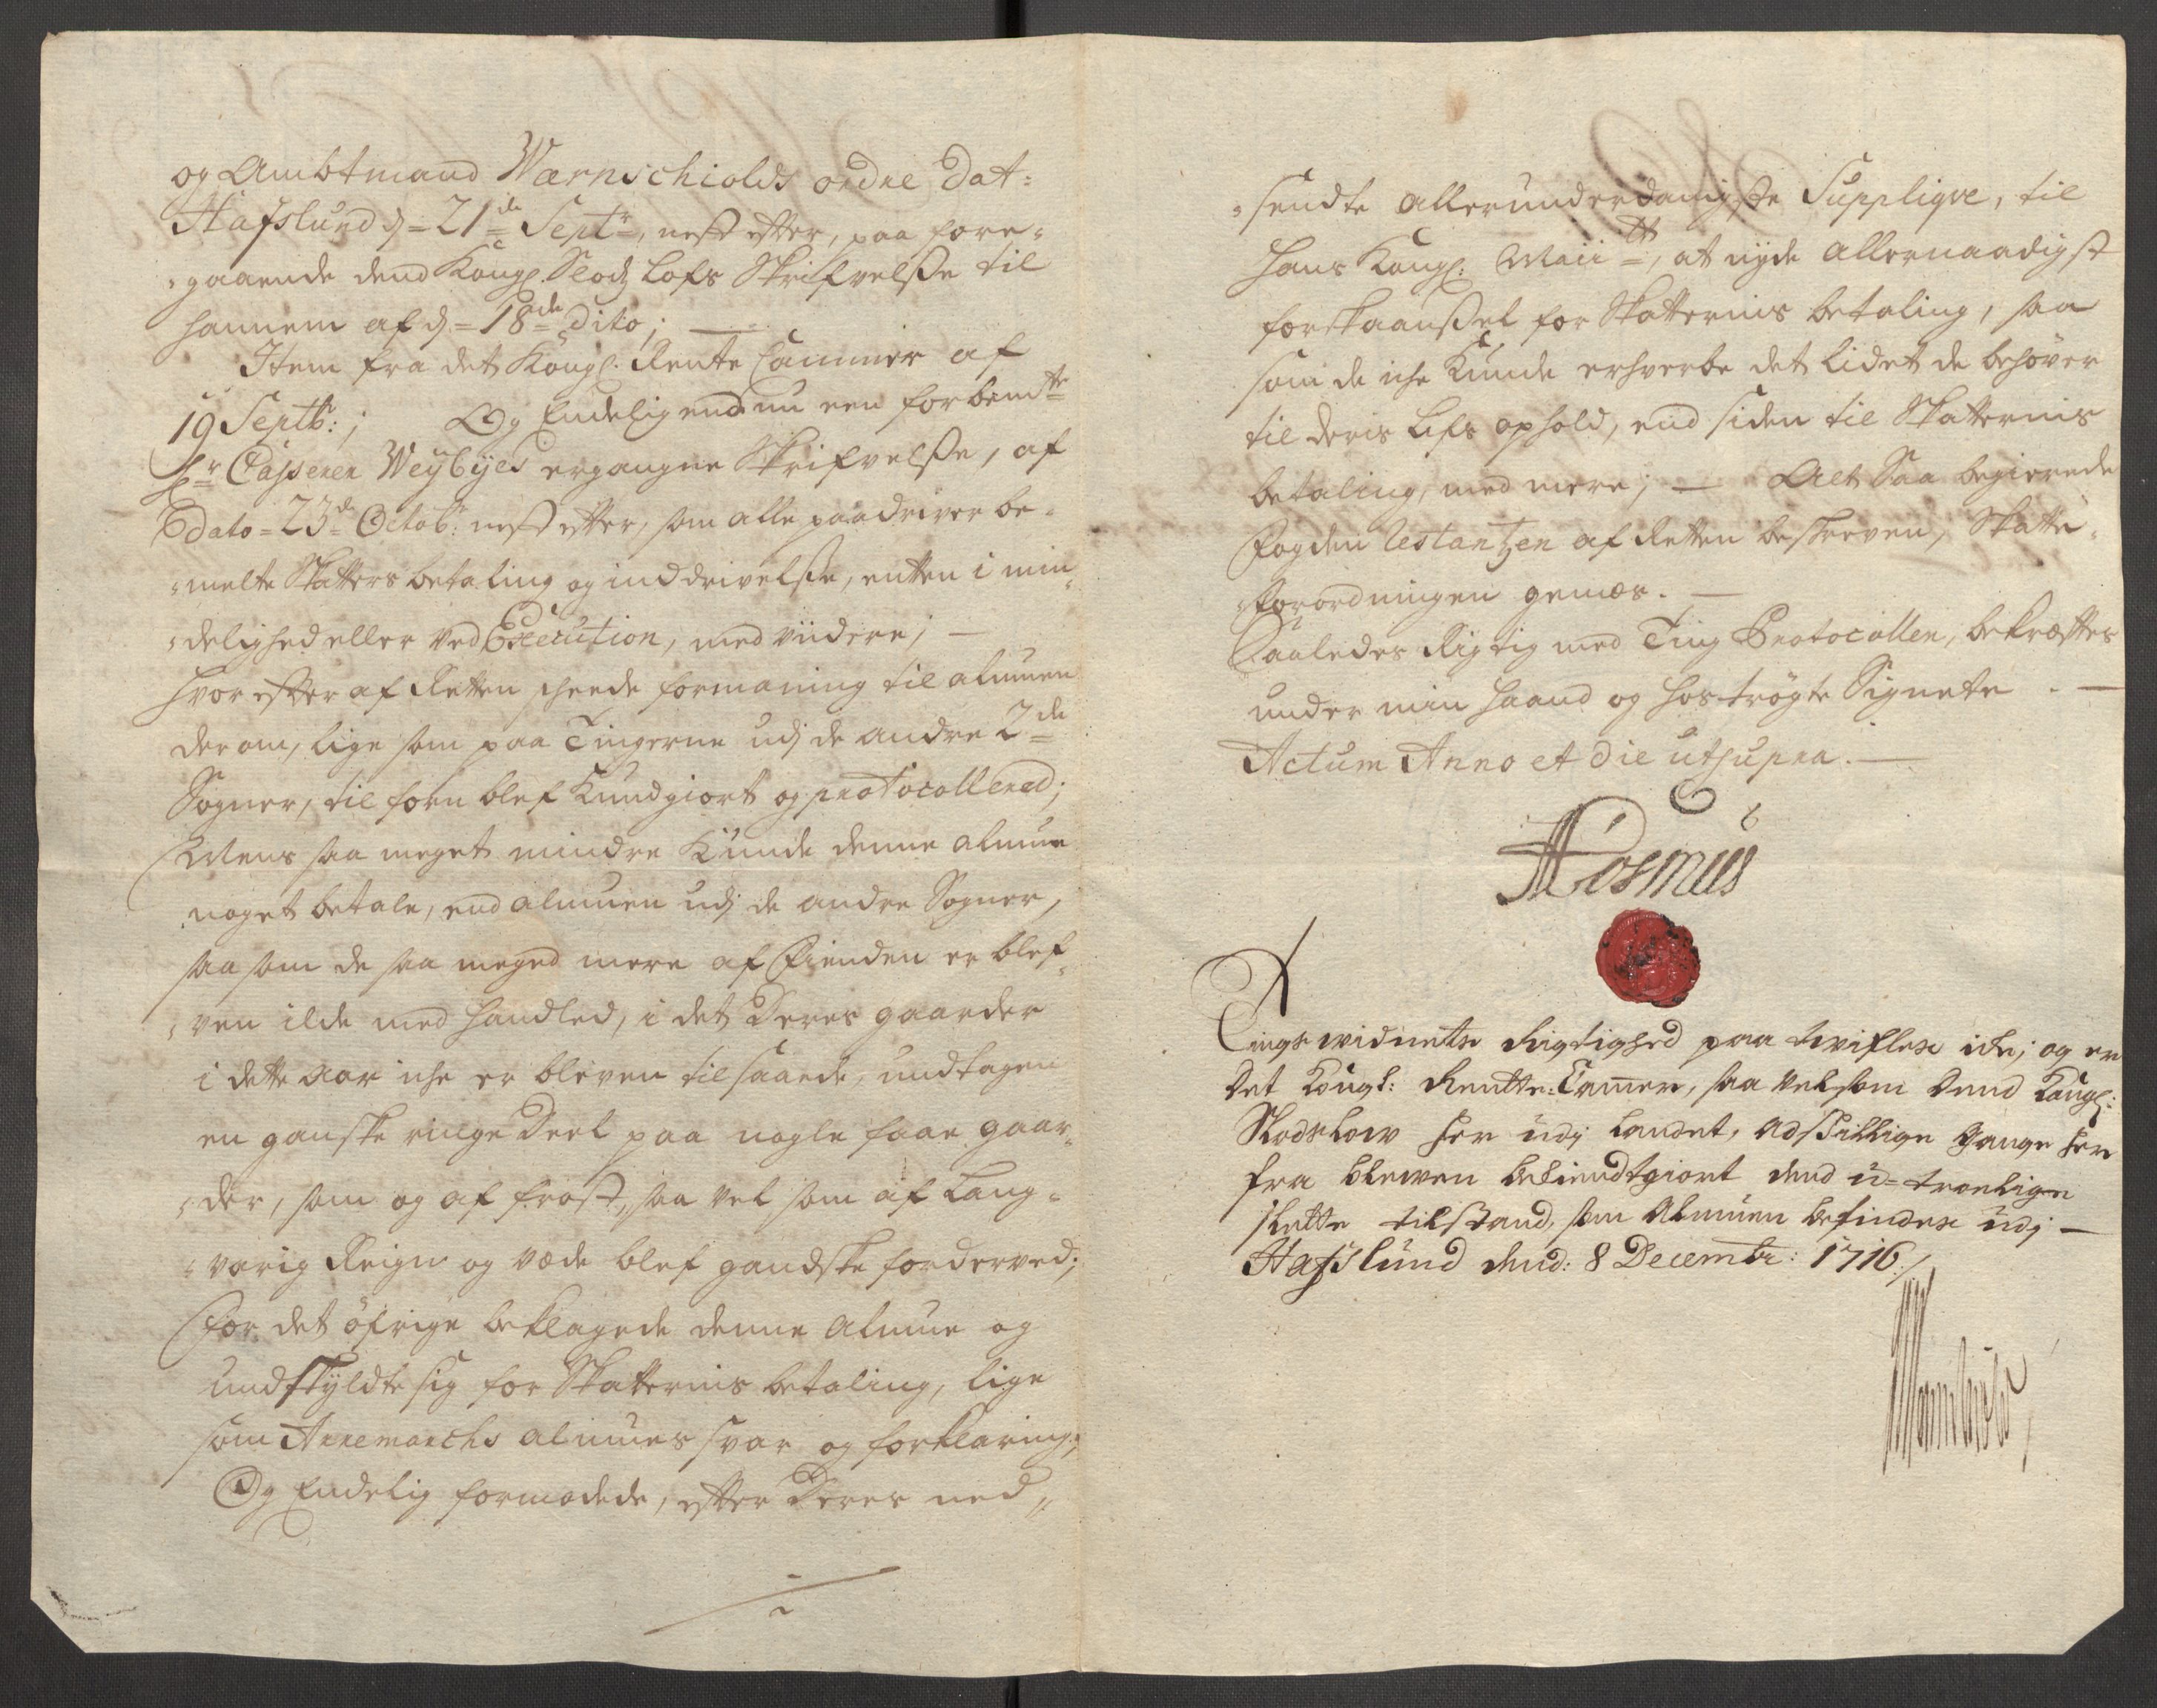 og Ambtmand Wærnschiolds ordre dat:
Hafslund d= 21de Septr, nest efter, paa fore-
gaaende dend Kongl. Slodz Lofs Skrifvelsse til
hannem af d= 18de dito; —
Item fra det Kongl. Rente Cammer af
19 Septb:; Og Endelig end nu een forbemte
Hr Casserer Weybyes ergangne Skrifvelsse, af
Dato = 23de Octob: nest efter, som alle paadriver be-
melte Skatters betaling og inddrivelsse, enten i min-
delighed eller ved Execution, med viidere; —
hvor efter af Retten skeede formaning til almuen
derom, lige som paa Tingerne udj de andre 2de
Sogner, til forn blef Kundgiort og protocollered;
Mens saa meget mindre Kunde denne almue
noget betale, end almuen udj de andre Sogner,
saa som de saa meged mere af Fienden er blef-
ven ilde med handled, i det Deres gaarder
i dette Aar iche er bleven til saaede, undtagen
en ganske ringe Deel paa nogle faae gaar-
der, som og af frost, saa vel som af Lang-
varig Reign og væde blef gandske forderved;
For det øfrige beklagede denne Almue og
undskyldte sig for Skatternis betaling, lige
som Arremarchs almues svar og forklaring;
Og Endelig formodede, efter Deres ned-
sendte allerunderdanigste Suppliqve, til
Hans Kongl: Maiitt, at nyde allernaadigst
forskaanssel for Skatternis betaling, saa
som de iche Kunde erhverbe det lidet de behøver
til deris Lifs ophold, end siden til Skatternis
betaling, med mere; — Alt Saa begierede
Fogden Restantzen af Retten beskreven, Skatte-
forordningen gemæs. —
Saaledes Rigtig med Ting Protocollen, bekræftes
under min haand og hostrøgte Signete. —
Actum Anno et die ut supra. —
Rosmus
Tings widnets Rigtighed paa twifles iche; og er
det Kongl: Rentte-Camer, saa velsom dend Kongl:
Slodslow her udj Landet, adskillige gange her
fra blewen bekiendtgiort dend u-troelige
slette tilstand, som Almuen befindes udj —
Hafslund dend: 8 Decembr: 1716